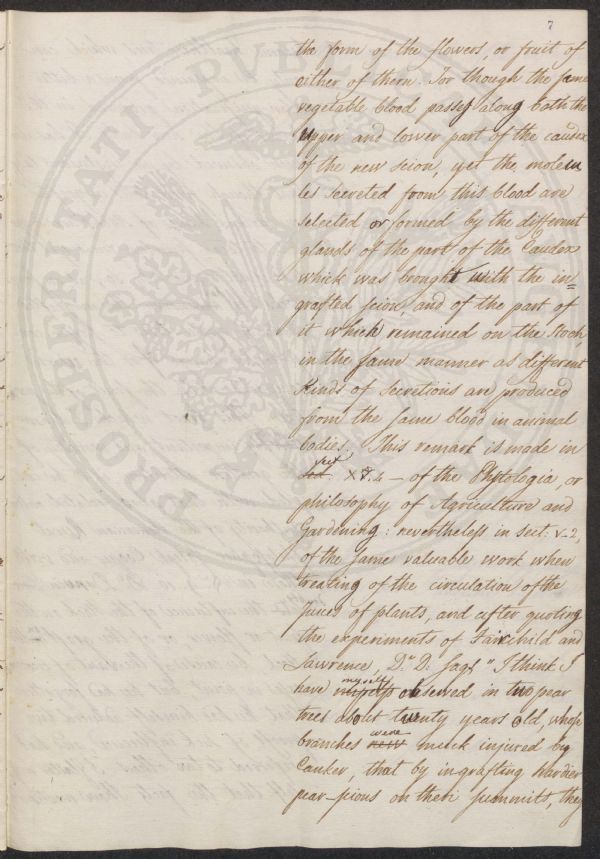 7
the form of the flowers, or fruit of
either of them. For though the same
vegetable blood passes along both the
upper and lower part of the caudex
of the new scion, yet the molecu
les secreted from this blood are
selected or formed by the different
glands of the part of the Caudex
which was brought with the in=
grafted scion, and of the part of
it which remained on the stock,
in the same manner as different
kinds of secretions are produced
from the same blood in animal
bodies. This remark is made in
sect X8.4 – of the Phytologia, or
philosophy of Agriculture and
Gardening: nevertheless in sect: v.2,
of the same valuable work when
treating of the circulation of the
Juices of plants, and after quoting
the experiments of Fairchild and
Lawrence, Dr. D. says "I think I
have myself observed in two pear
trees about twenty years old, whose
branches were much injured by
Canker, that by ingrafting hardier
pear-scions on their summits, they
PROSPERITATI PUBLICAE